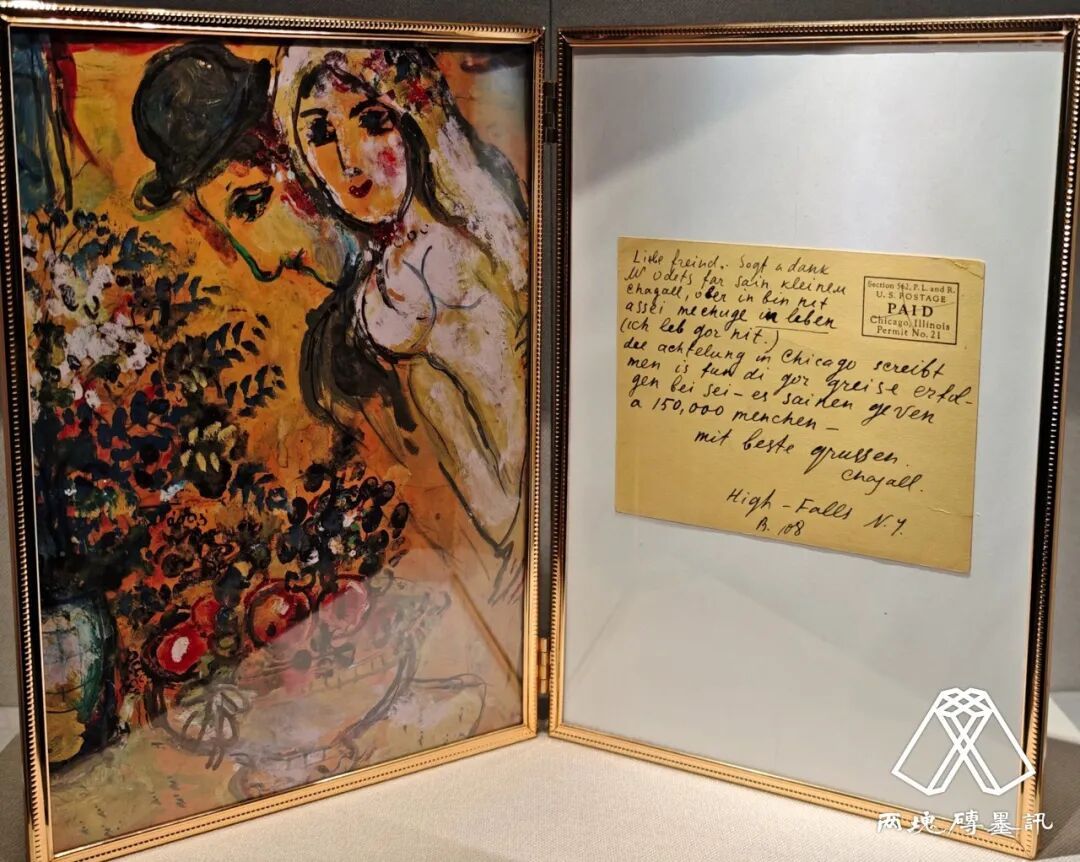 Liebe freind. Sogt a dank
W Odets far sain kleinem
chagall, ober in bin nit
assei mechuge in leben
(ich leb gor nit.)
die achtelung in Chicago screibt
men is fun di gor greise erfol-
gen bei sei - es sainen geven
a 150,000 menchen -
mit beste grussen.
Chagall.
High - Falls N.Y.
B. 108
Section 562, P. L. and R.
U. S. POSTAGE
PAID
Chicago, Illinois
Permit No. 21
两塊磚墨訊